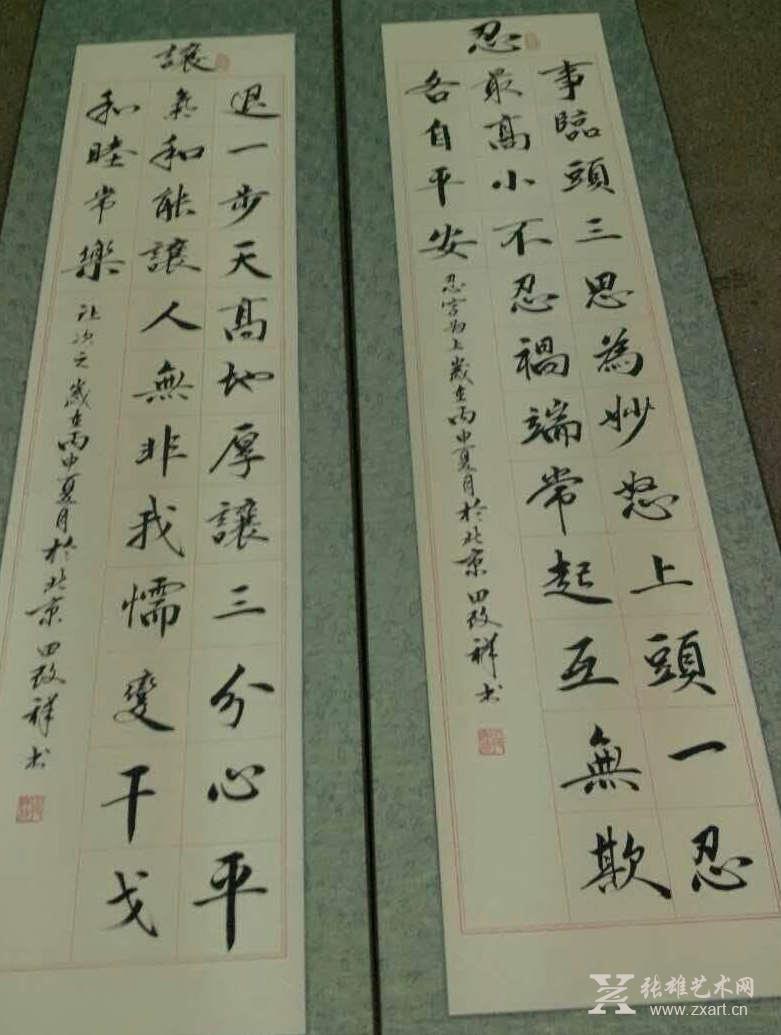 忍
事臨頭三思為妙怒上頭一忍
最高小不忍禍端常起互無欺
各自平安
忍字為上歲在丙申夏月於北京田改祥书
讓
退一步天高地厚讓三分心平
氣和能讓人無非我懦變干戈
和睦常樂
让次之歲在丙申夏月於北京田改祥书
张雄艺术网
www.zxart.cn